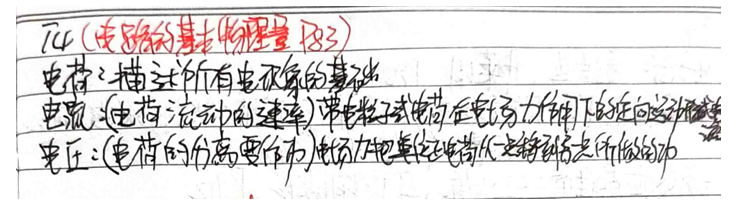 T4(电路的基本物理量 P83)
电荷:描述所有电现象的基础
电流:(电荷流动的速率)带电粒子或电荷在电场力作用下的定向运动形成电流
电压:(电荷的分离要作功)电场力把单位正电荷从一点移到另一点所做的功